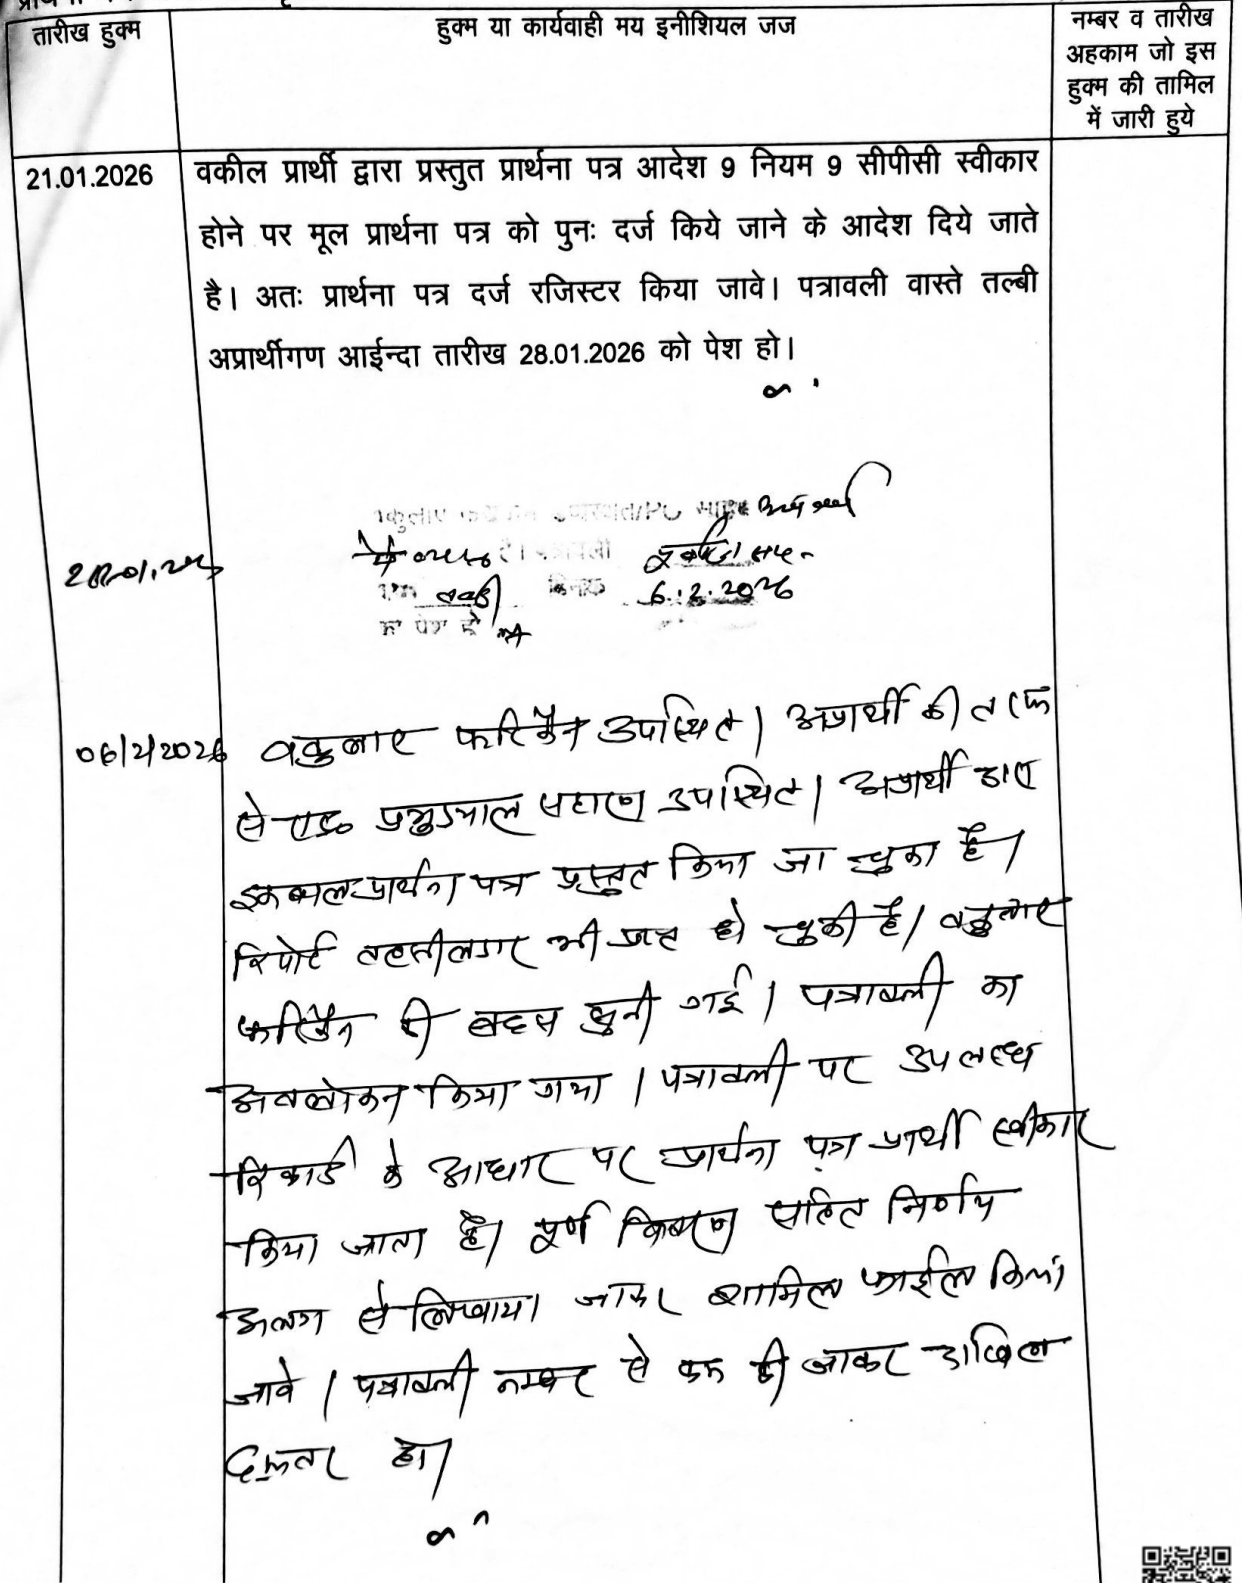 तारीख हुक्म
हुक्म या कार्यवाही मय इनीशियल जज
नम्बर व तारीख
अहकाम जो इस
हुक्म की तामिल
में जारी हुये
21.01.2026
वकील प्रार्थी द्वारा प्रस्तुत प्रार्थना पत्र आदेश 9 नियम 9 सीपीसी स्वीकार
होने पर मूल प्रार्थना पत्र को पुनः दर्ज किये जाने के आदेश दिये जाते
है। अतः प्रार्थना पत्र दर्ज रजिस्टर किया जावे। पत्रावली वास्ते तल्बी
अप्रार्थीगण आईन्दा तारीख 28.01.2026 को पेश हो।
6.2.2026
को पेश हो
06/2/2026 वकुलाए फरिकैन उपस्थित। अप्रार्थी की तरफ
से एड० प्रभुदयाल सहारण उपस्थित। अप्रार्थी द्वारा
प्रार्थना पत्र प्रस्तुत किया जा चुका है।
रिपोर्ट तहसीलदार भी प्राप्त हो चुकी है। वकुलाए
फरिकैन की बहस सुनी गई। पत्रावली का
अवलोकन किया गया। पत्रावली पर उपलब्ध
रिकार्ड के आधार पर प्रार्थना पत्र प्रार्थी स्वीकार
किया जाता है। पूर्ण विवरण सहित निर्णय
अलग से लिखाया जाकर शामिल फाईल किया
जावे। पत्रावली नम्बर से कम की जाकर दाखिल
दफ्तर हो।